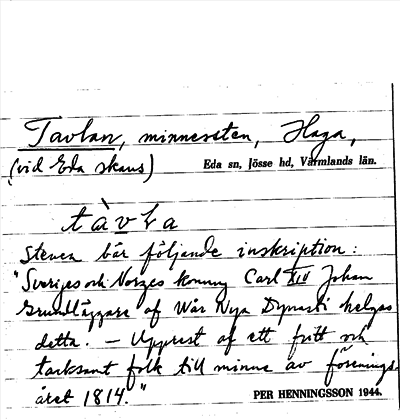 Tavlan, minnessten, Haga,
(vid Eda skans) Eda sn, Jösse hd, Värmlands län.
tàvla
Stenen bär följande inskription:
"Sveriges och Norges konung Carl XIV Johan
Grundläggare af Wår Nya Dynasti helgas
detta. — Upprest af ett fritt och
tacksamt folk till minne av förenings-
året 1814."
PER HENNINGSSON 1944.